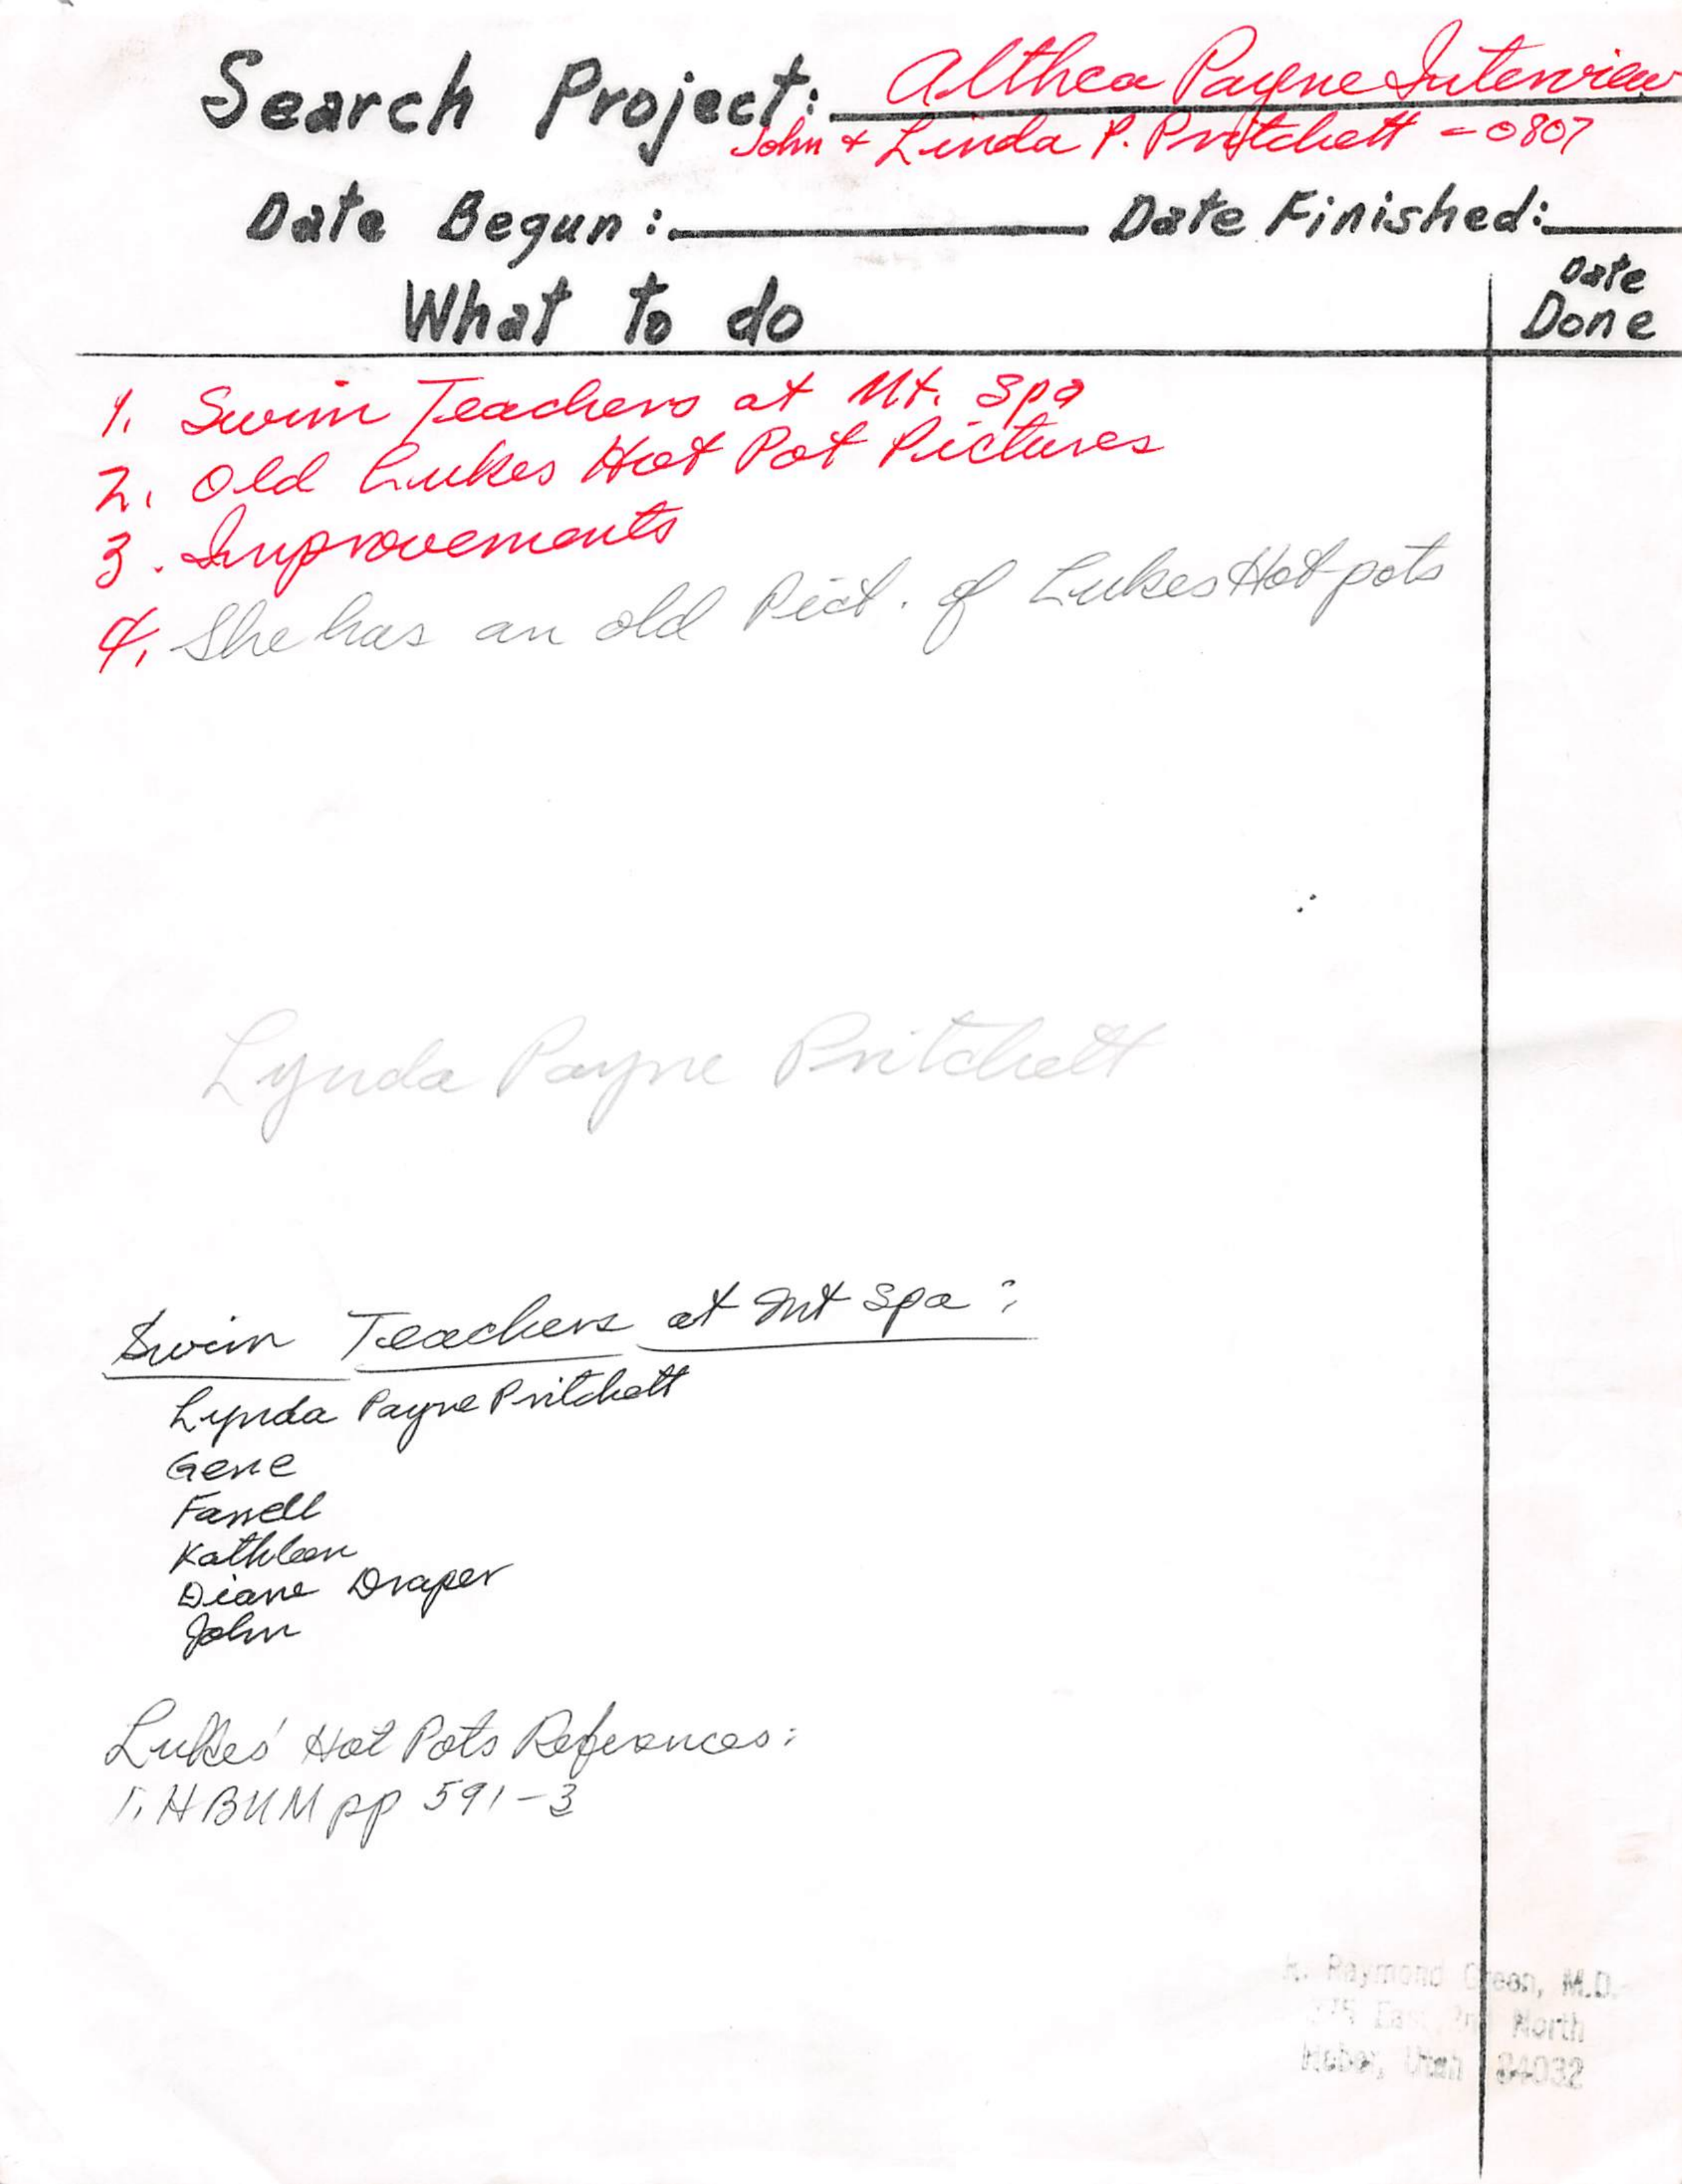 Search Project: Althea Payne Interview
John & Linda P. Pritchett - 0807
Date Begun: Date Finished:
What to do
Date
Done
1. Swim Teachers at Mt. Spa
2. Old Lukes Hot Pot Pictures
3. Improvements
4. She has an old Pict. of Lukes Hot pots
Lynda Payne Pritchett
Swim Teachers at Mt Spa:
Lynda Payne Pritchett
Gene
Farrell
Kathleen
Diane Draper
John
Lukes' Hot Pots References:
1. HBUM pp 591-3
R. Raymond Green, M.D.
East 2nd North
Heber, Utah 84032